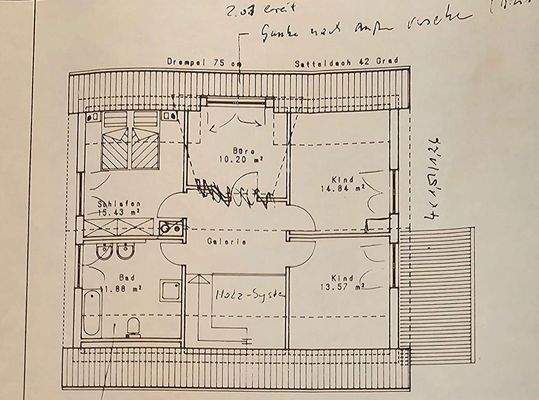 2.01 breit
Gaube nach außen
Drempel 75 cm Satteldach 42 Grad
Büro
10.20 m²
Kind
14.84 m²
Schlafen
15.43 m²
Galerie
Bad
11.88 m²
Kind
13.57 m²
Holz-System